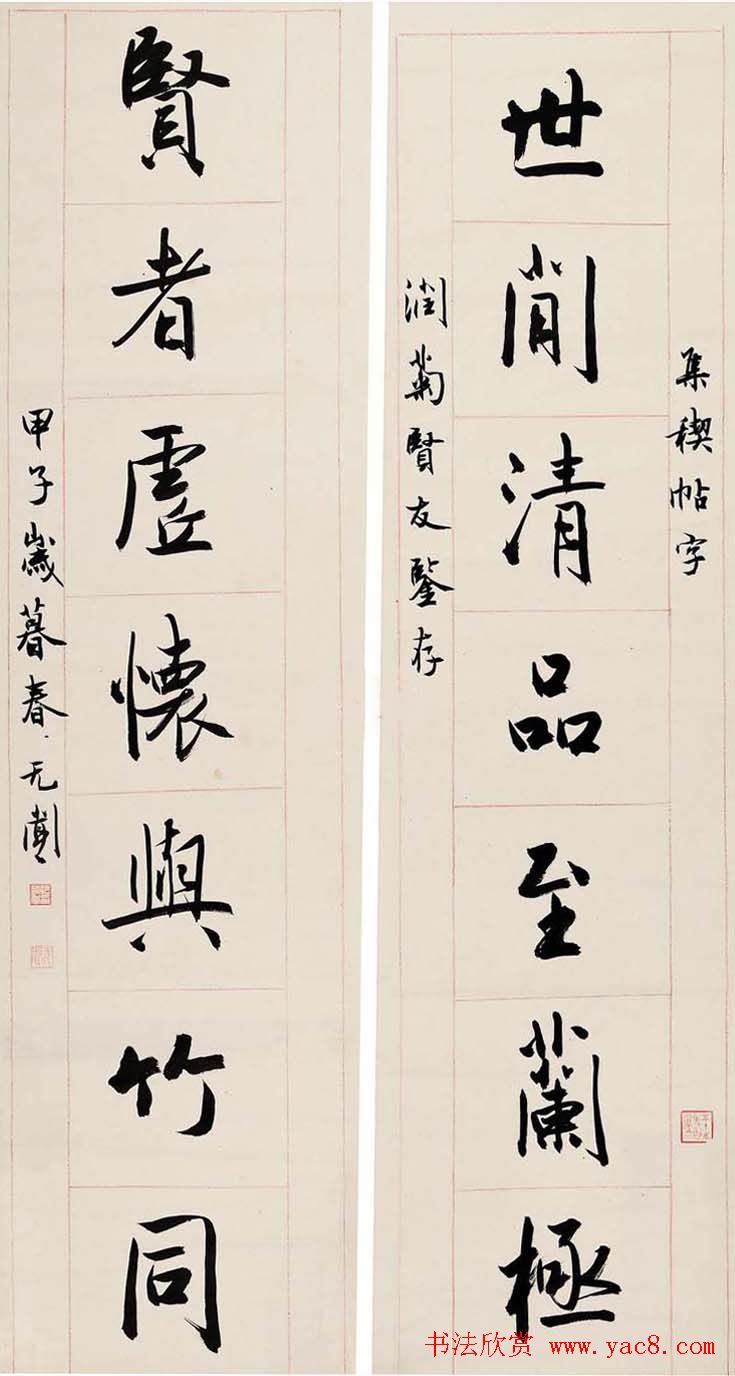 集稧帖字
世閒清品至蘭極
潤菊賢友鑒存
賢者虛懷與竹同
甲子歲暮春无聞
书法欣赏 www.yac8.com